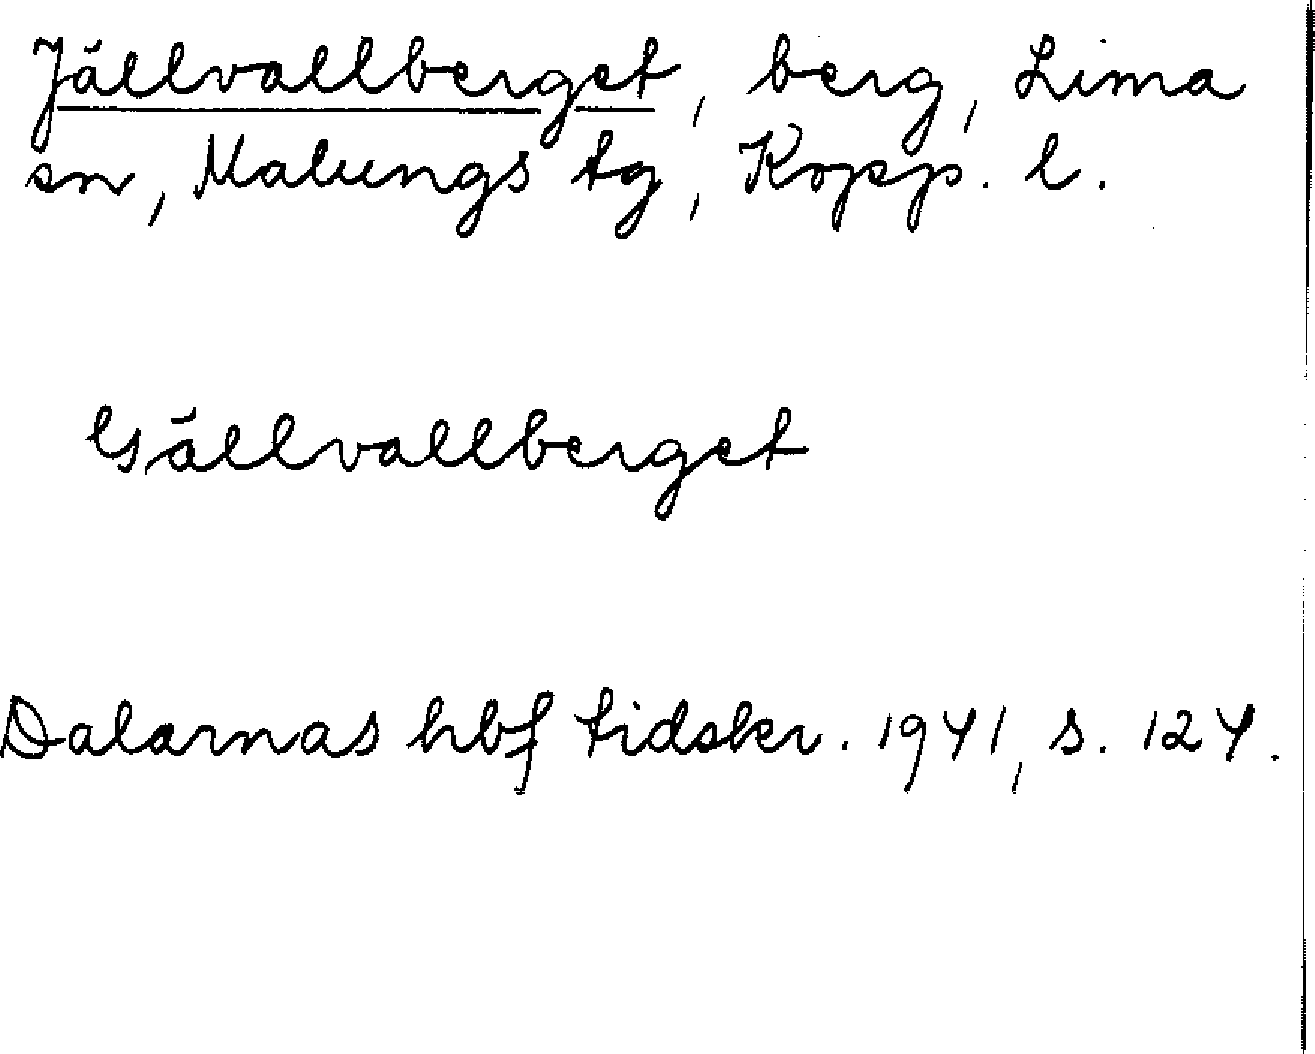 Jällvallberget, berg, Lima
sn, Malungs tg, Kopp. l.
Gällvallberget
Dalarnas hbf tidskr. 1941, s. 124.